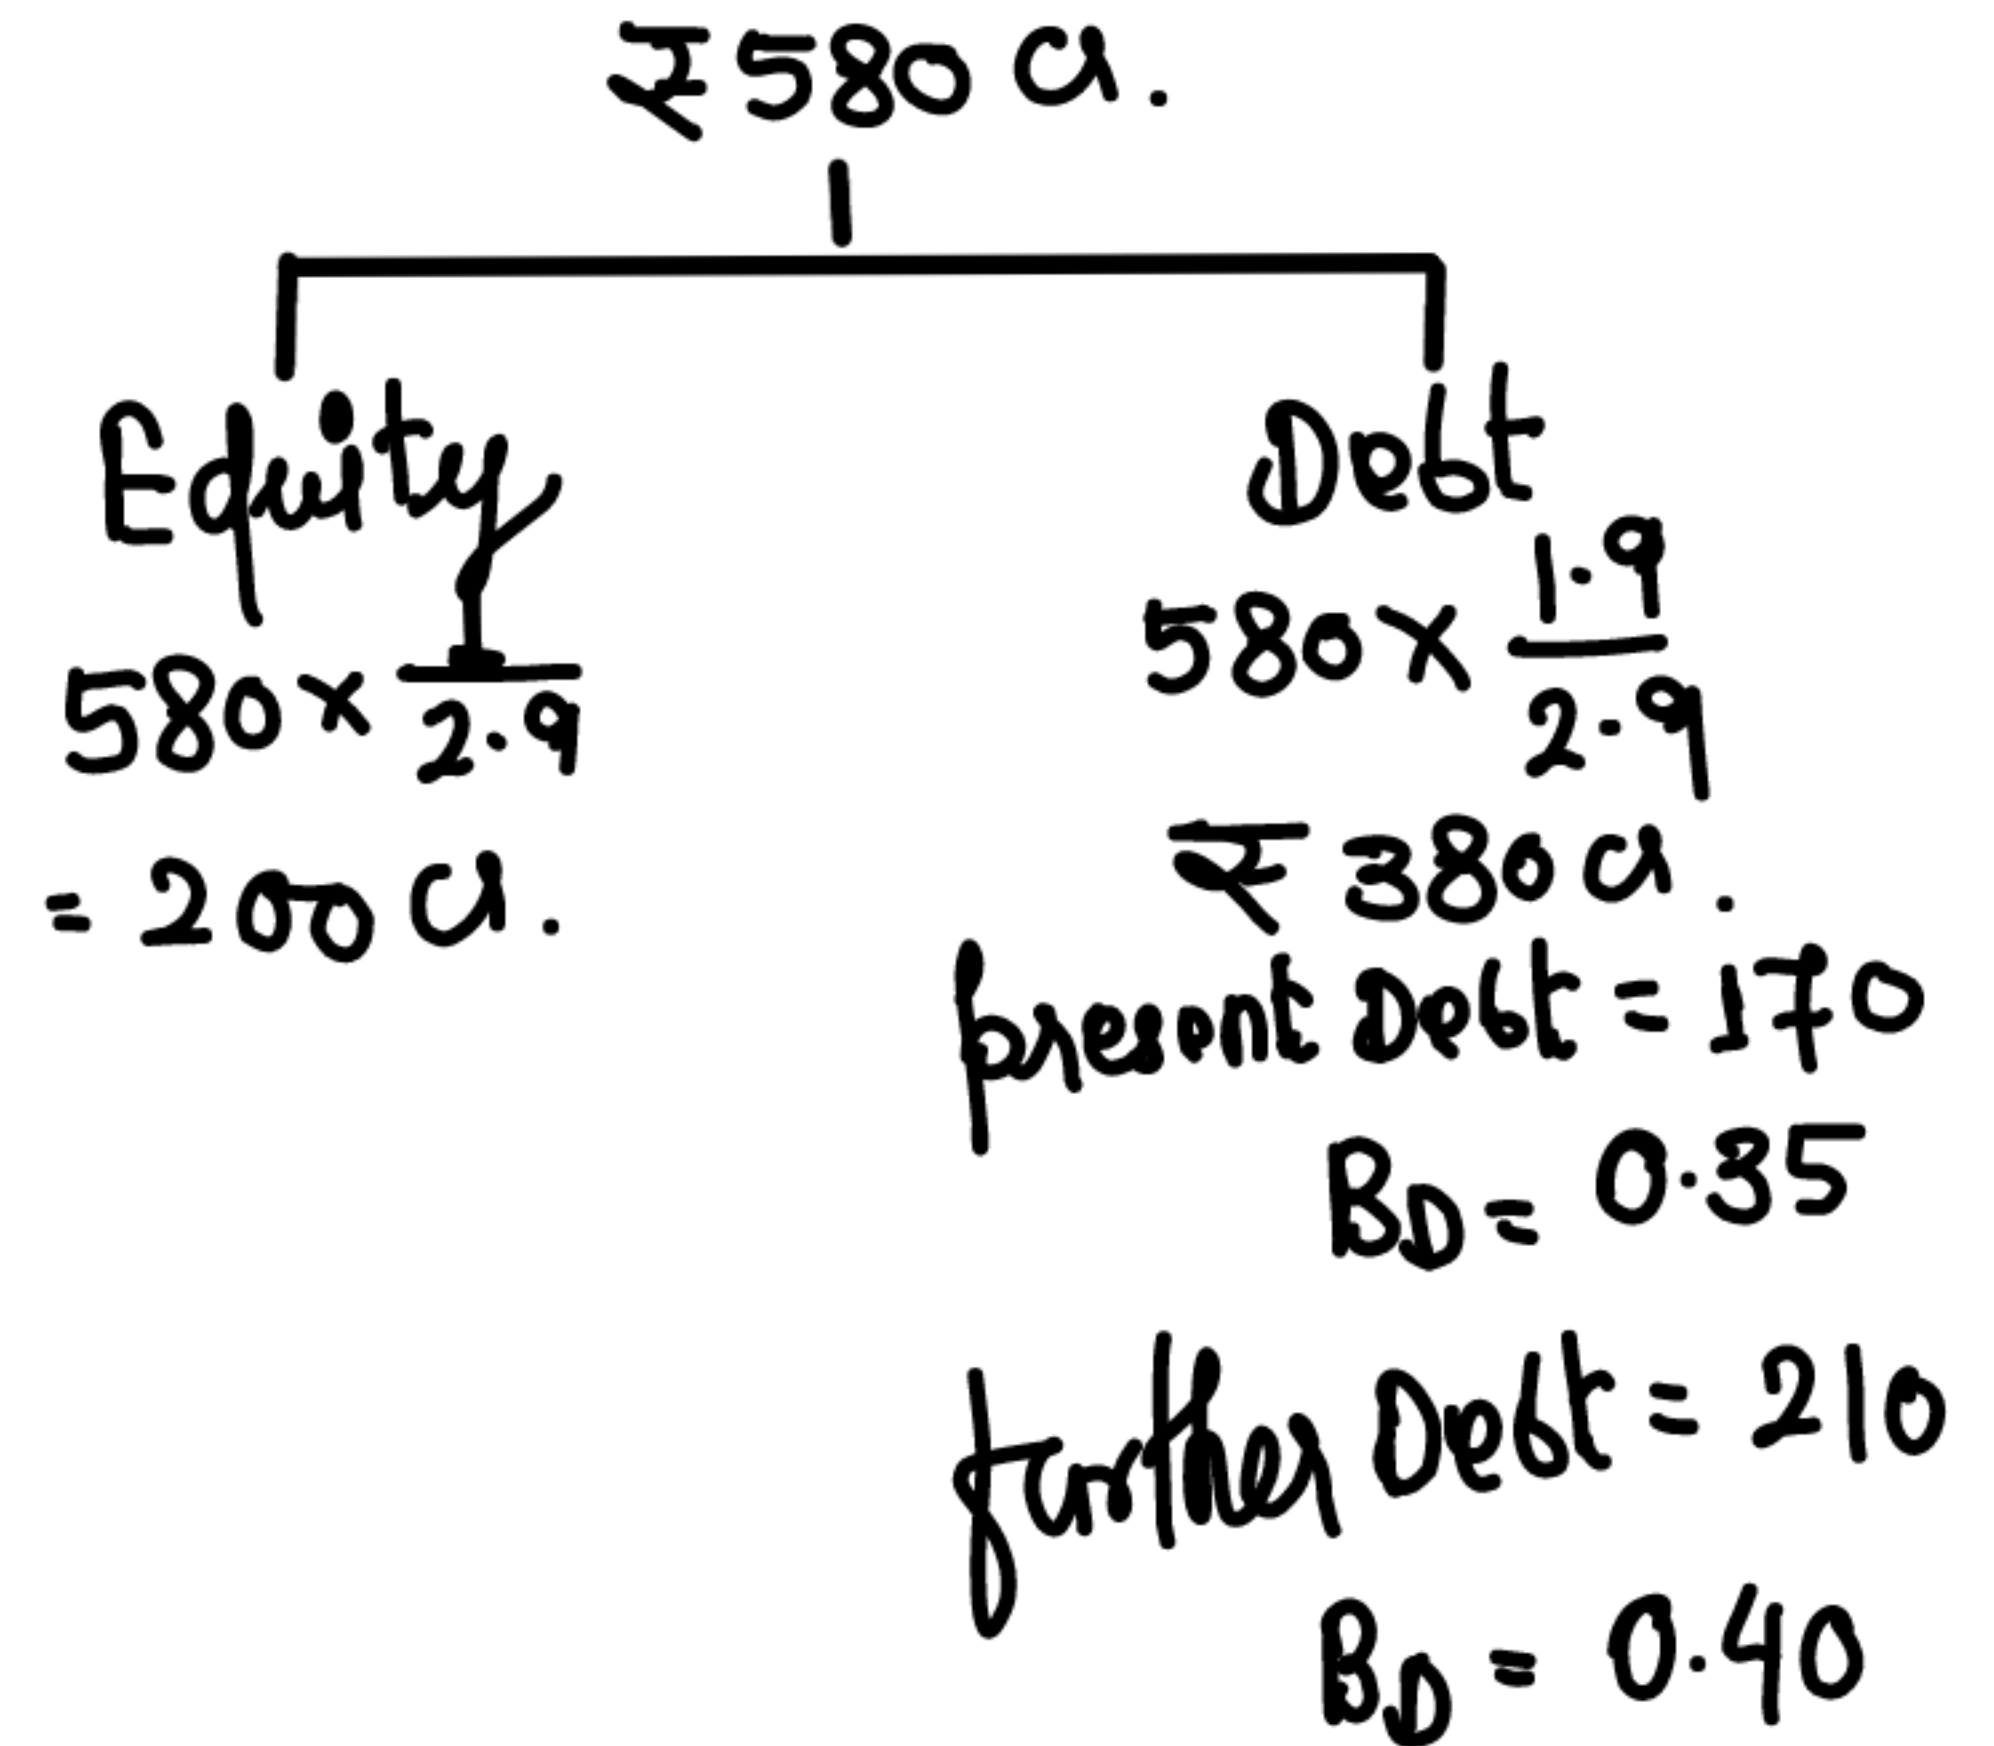 ₹ 580 Cr.
Equity
580 × 1/2.9
= 200 Cr.
Debt
580 × 1.9/2.9
₹ 380 Cr.
present Debt = 170
BD = 0.35
further Debt = 210
BD = 0.40